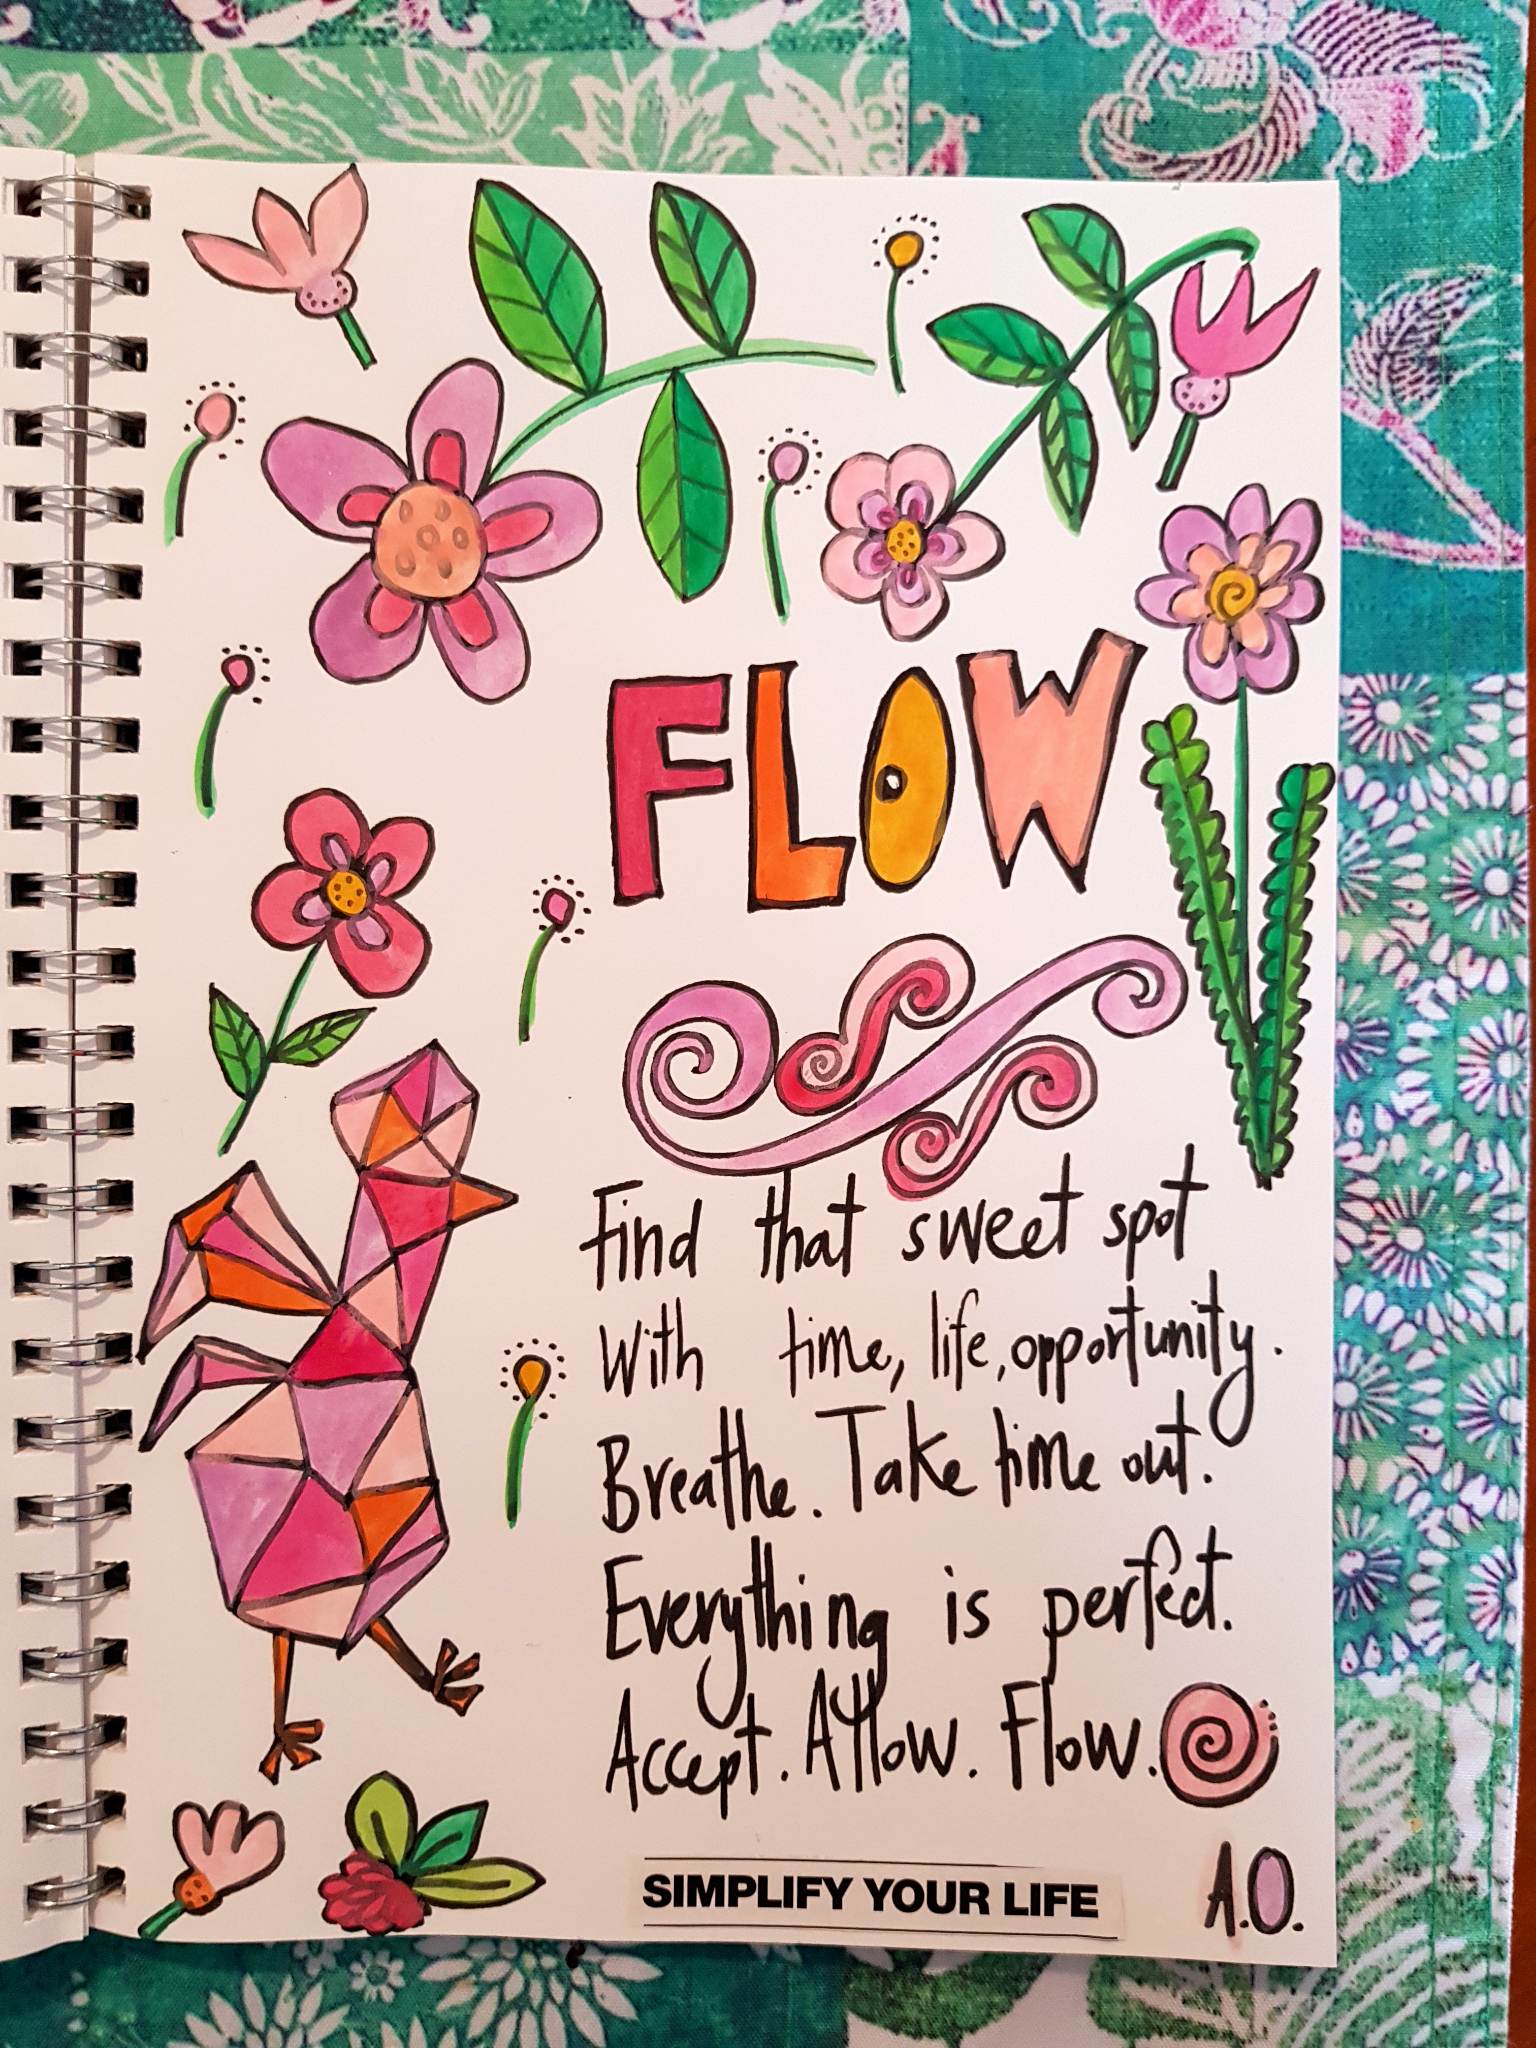 FLOW
Find that sweet spot
With time, life, opportunity.
Breathe. Take time out.
Everything is perfect.
Accept. Allow. Flow.
SIMPLIFY YOUR LIFE
A.O.